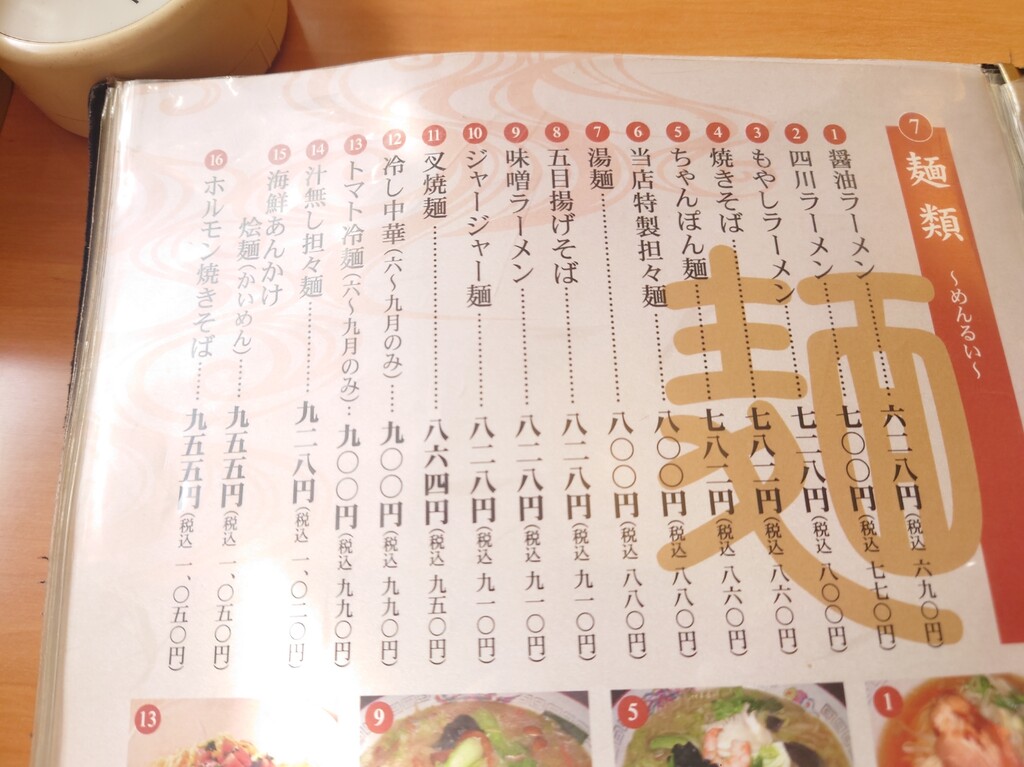 7 麺類 〜めんるい〜
麺
1 醤油ラーメン……六二八円(税込 六九〇円)
2 四川ラーメン……七〇〇円(税込 七七〇円)
3 もやしラーメン……七二八円(税込 八〇〇円)
4 焼きそば……七八二円(税込 八六〇円)
5 ちゃんぽん麺……七八二円(税込 八六〇円)
6 当店特製担々麺……八〇〇円(税込 八八〇円)
7 湯麺……八〇〇円(税込 八八〇円)
8 五目揚げそば……八二八円(税込 九一〇円)
9 味噌ラーメン……八二八円(税込 九一〇円)
10 ジャージャー麺……八二八円(税込 九一〇円)
11 叉焼麺……八六四円(税込 九五〇円)
12 冷し中華(六〜九月のみ)……九〇〇円(税込 九九〇円)
13 トマト冷麺(六〜九月のみ)…九〇〇円(税込 九九〇円)
14 汁無し担々麺……九二八円(税込 一、〇二〇円)
15 海鮮あんかけ
烩麺(かいめん)……九五五円(税込 一、〇五〇円)
16 ホルモン焼きそば……九五五円(税込 一、〇五〇円)
13
9
5
1